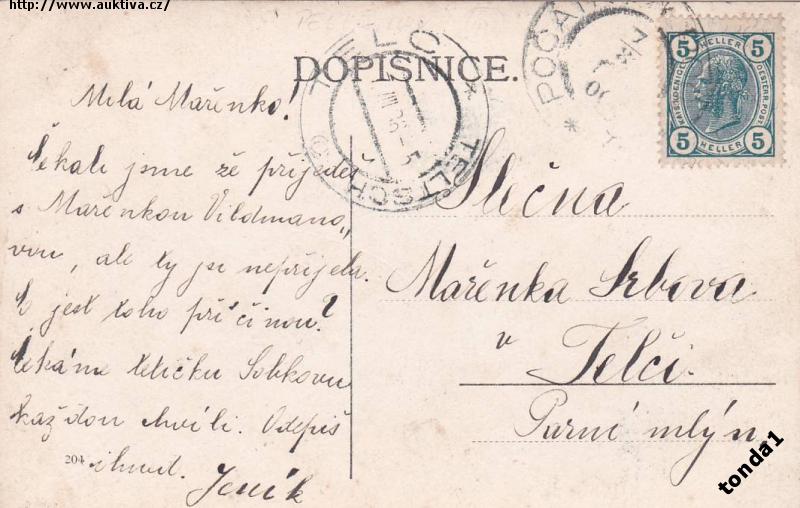 http://www.auktiva.cz/
DOPISNICE.
TELČ * TELTSCH
POČÁT
5 HELLER 5
5 HELLER 5
Milá Mařenko!
Čekali jsme že přijedeš
s Mařenkou Vildmano„
vou, ale ty jsi nepřijela.
Co jest toho příčinou?
Čekáme tetičku Sobkovu
každou chvíli. Odepiš
ihned.
Jeník
204
Slečna
Mařenka Srbova
v
Telči.
Parní mlýn
tonda1